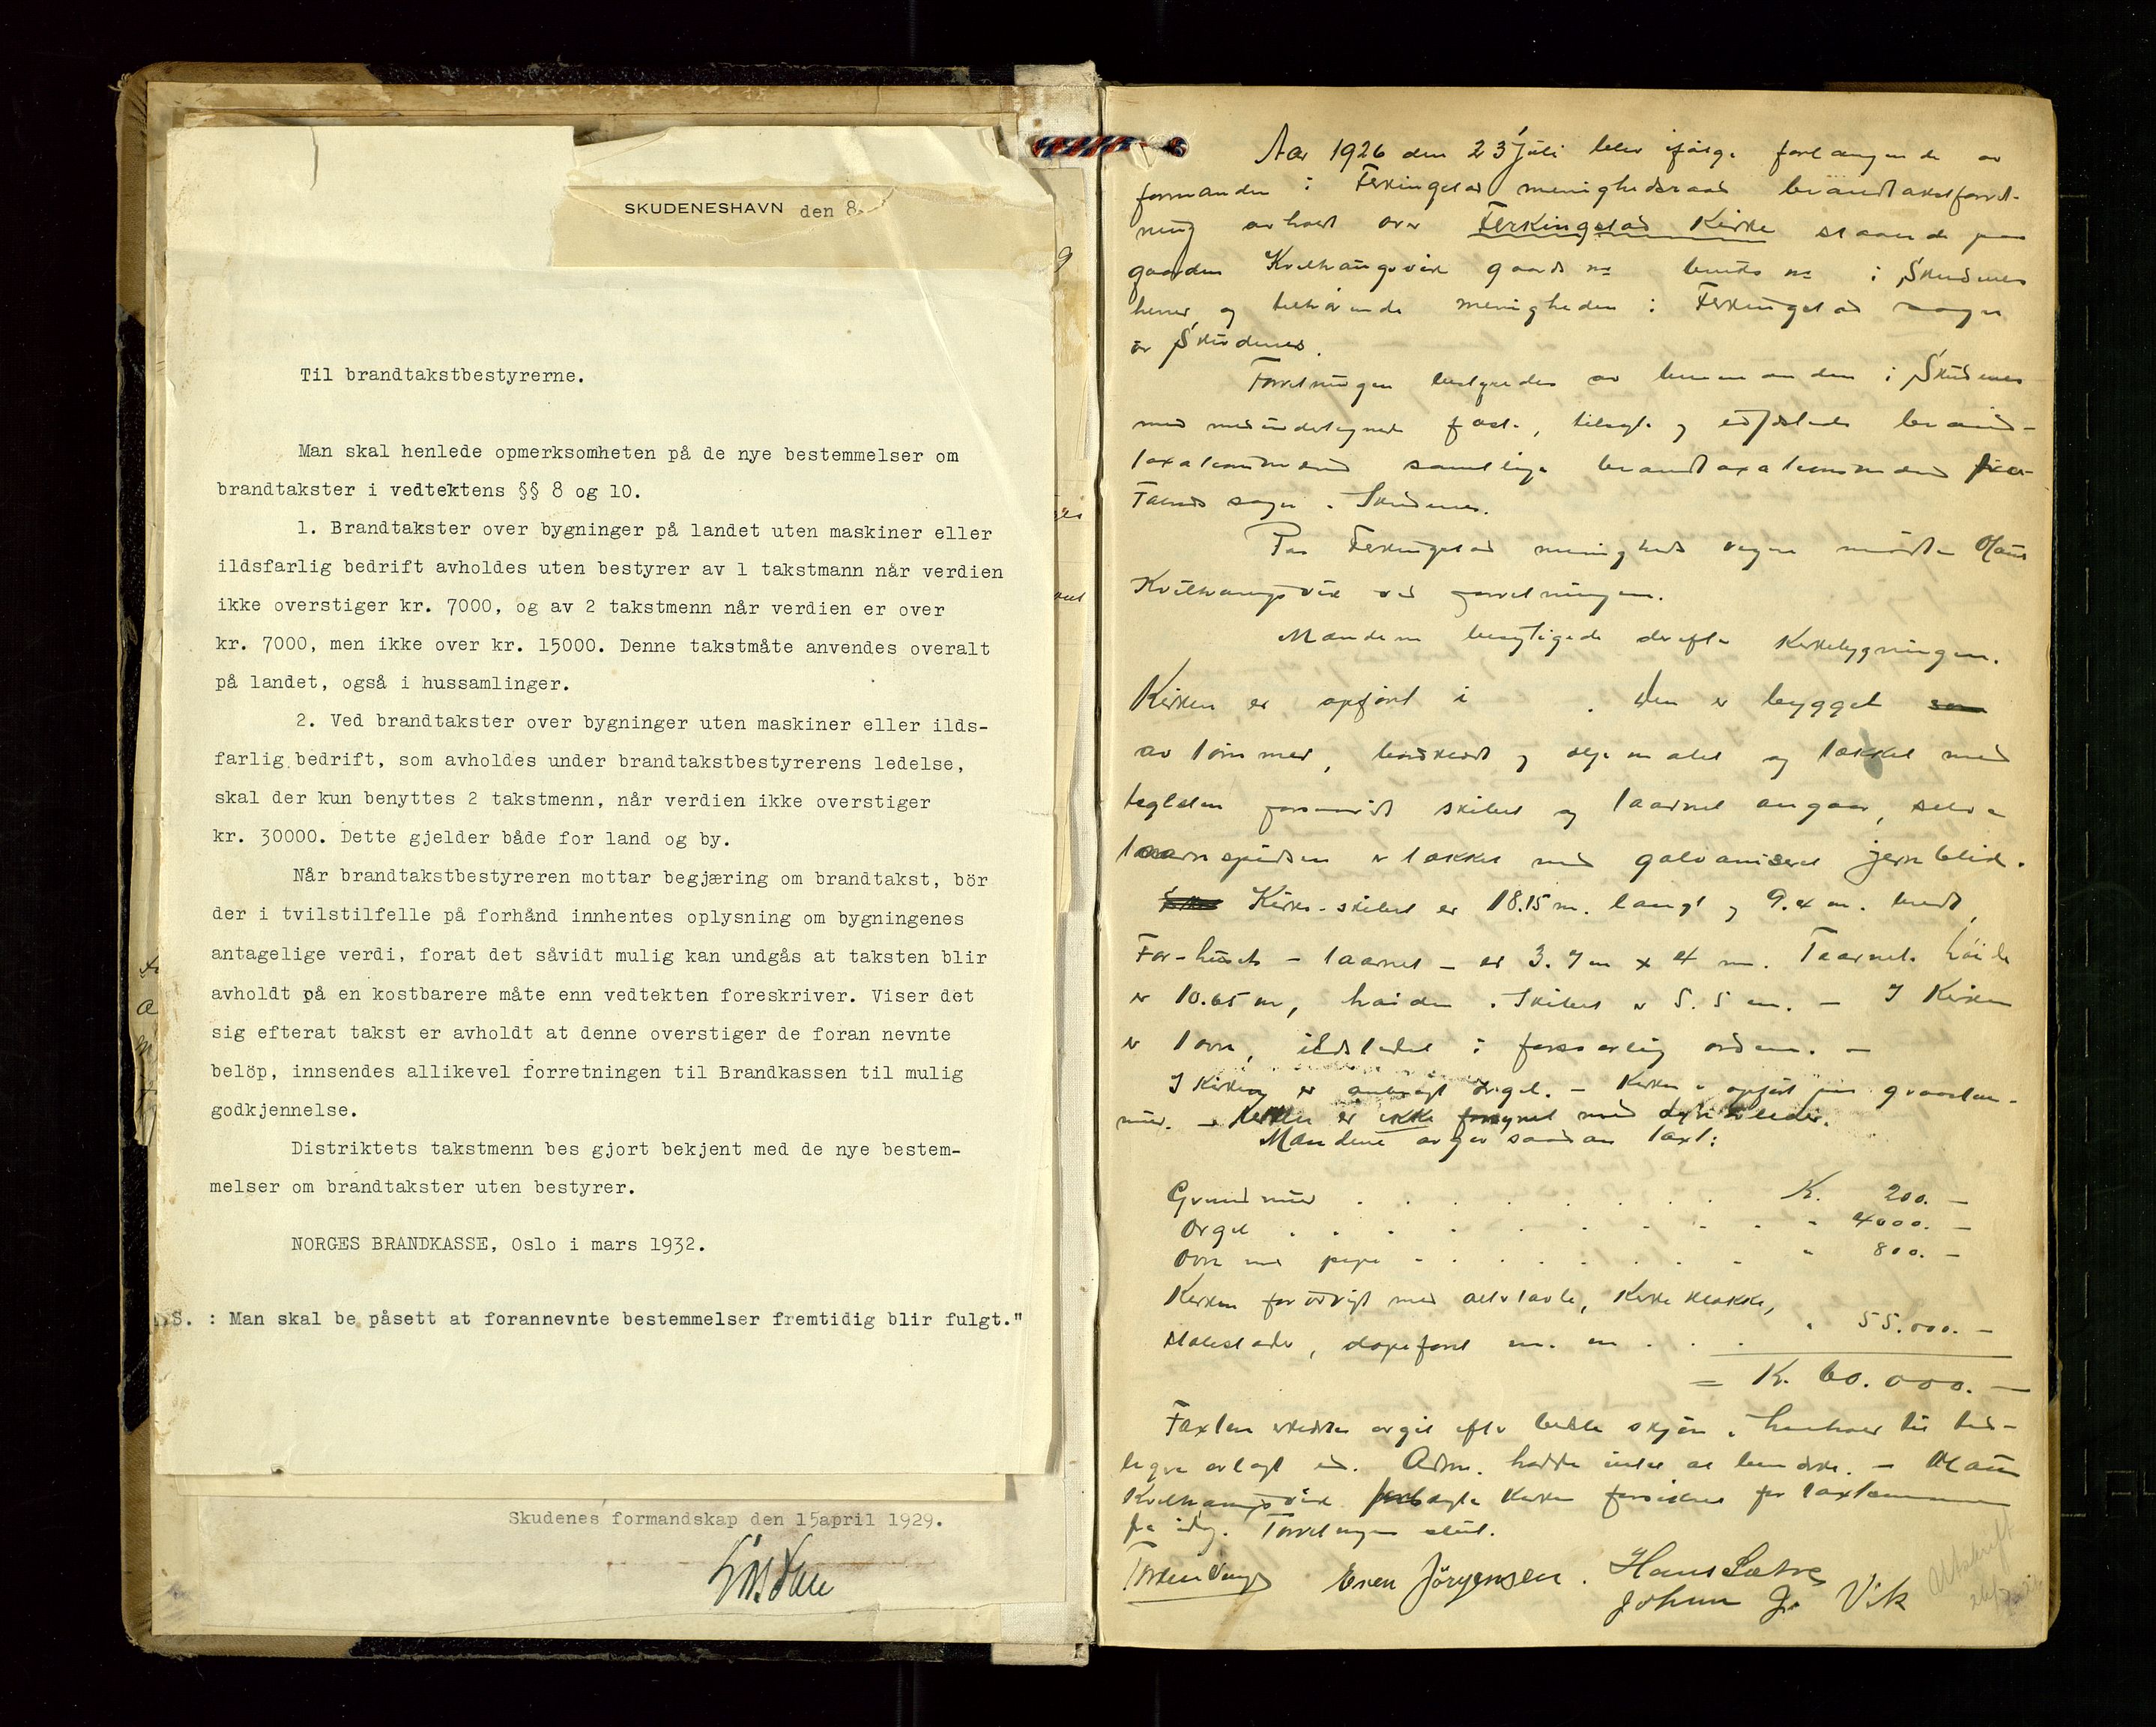 SKUDENESHAVN den 8.
Til brandtakstbestyrerne.
Man skal henlede opmerksomheten på de nye bestemmelser om
brandtakster i vedtektens §§ 8 og 10.
1. Brandtakster over bygninger på landet uten maskiner eller
ildsfarlig bedrift avholdes uten bestyrer av 1 takstmann når verdien
ikke overstiger kr. 7000, og av 2 takstmenn når verdien er over
kr. 7000, men ikke over kr. 15000. Denne takstmåte anvendes overalt
på landet, også i hussamlinger.
2. Ved brandtakster over bygninger uten maskiner eller ilds-
farlig bedrift, som avholdes under brandtakstbestyrerens ledelse,
skal der kun benyttes 2 takstmenn, når verdien ikke overstiger
kr. 30000. Dette gjelder både for land og by.
Når brandtakstbestyreren mottar begjæring om brandtakst, bör
der i tvilstilfelle på forhånd innhentes oplysning om bygningenes
antagelige verdi, forat det såvidt mulig kan undgås at taksten blir
avholdt på en kostbarere måte enn vedtekten foreskriver. Viser det
sig efterat takst er avholdt at denne overstiger de foran nevnte
belöp, innsendes allikevel forretningen til Brandkassen til mulig
godkjennelse.
Distriktets takstmenn bes gjort bekjent med de nye bestem-
melser om brandtakster uten bestyrer.
NORGES BRANDKASSE, Oslo i mars 1932.
S. : Man skal be påsett at forannevnte bestemmelser fremtidig blir fulgt."
Skudenes formandskap den 15april 1929.
Aar 1926 den 23 Juli blev ifølge forlangende av
formanden i Ferkingstad menighedsraad brandtaxtforret-
ning avholdt over Ferkingstad Kirke staaende paa
gaarden Kvilhaugsvik gaards no bruks no i Skudenes
herred og tilhørende menigheden i Ferkingstad sogn
av Skudenes.
Forretningen bestyredes av lensmanden i Skudenes
med medundertegnede faste, tilsagte og edfæstede brand-
taxationsmænd samtlige brandtaxationsmænd fra
Falnes sogn i Skudenes.
Paa Ferkingstad menigheds vegne mødte Hans
Kvilhaugsvik ved forretningen.
Mændene besigtigede derefter Kirkebygningen.
Kirken er opført i . Den er bygget som
av tømmer, bordklædt og oljemalet og tækket med
teglsten forsaavidt skibet og taarnet angaar, selve
taarnspidsen er tækket med galvaniseret jernblik.
Kirke-skibet er 18.15 m. langt og 9.4 m. bredt,
For-huset - taarnet - er 3.7 m x 4 m. Taarnets høide
er 10.65 m, høiden i Skibet er 5.5 m. - I Kirken
er 1 ovn, ildstedet i forsvarlig orden. -
I Kirken er anbragt orgel. - Kirken er opført paa graasten-
mur. - Kirken er ikke forsynet med lynavleder.
Mændene avgav saadan taxt:
Grundmur . . . . . . . . K. 200. -
Orgel . . . . . . . . " 4000. -
Ovn med pipe . . . . . . . " 800. -
Kirken forøvrigt med altertavle, Kirkeklokke,
stolestader, døpefont m. m . . . " 55.000. -
= K. 60.000. -
Taxten erklæres avgit efter bedste skjøn i henhold til tid-
ligere avlagt ed. Adm. hadde intet at bemerke. - Hans
Kvilhaugsvik forlangte Kirken forsikret for taxtsummen
fra idag. Forretningen slut.
Even Jørgensen. Hans Sætre
Johan J. Vik
Utskrift